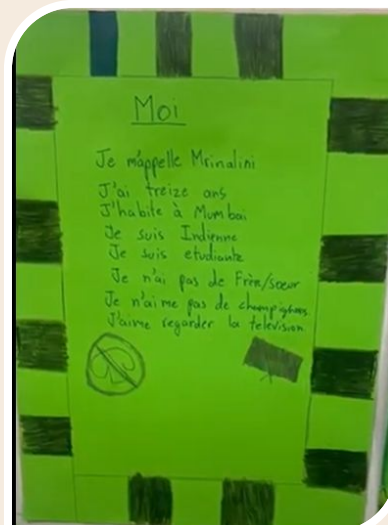 Moi
Je m'appelle Mrinalini
J'ai treize ans
J'habite à Mumbai
Je suis Indienne
Je suis etudiante
Je n'ai pas de Frère/soeur
Je n'aime pas de champignons.
J'aime regarder la television.